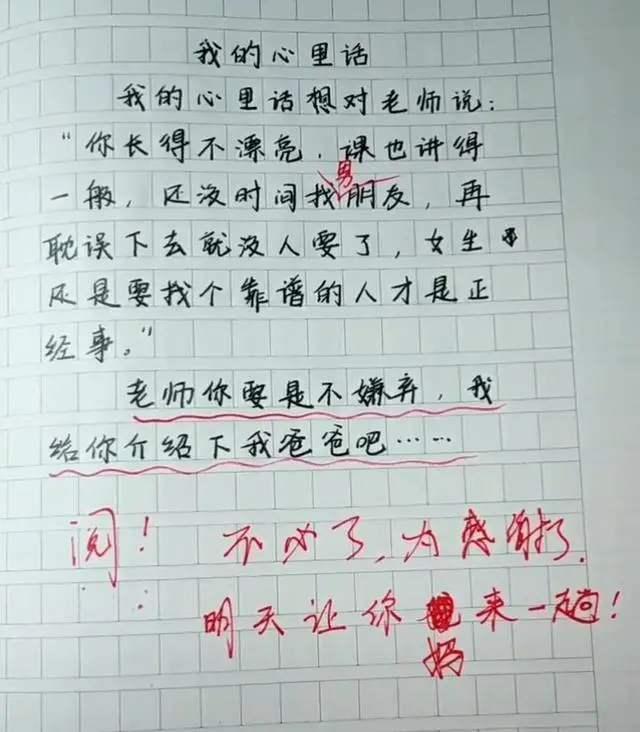 我的心里话
我的心里话想对老师说：
“你长得不漂亮，课也讲得
一般，还没时间找男朋友，再
耽误下去就没人要了，女生
还是要找个靠谱的人才是正
经事。”
老师你要是不嫌弃，我
给你介绍下我爸爸吧……
阅！不必了，
明天让你妈来一趟！